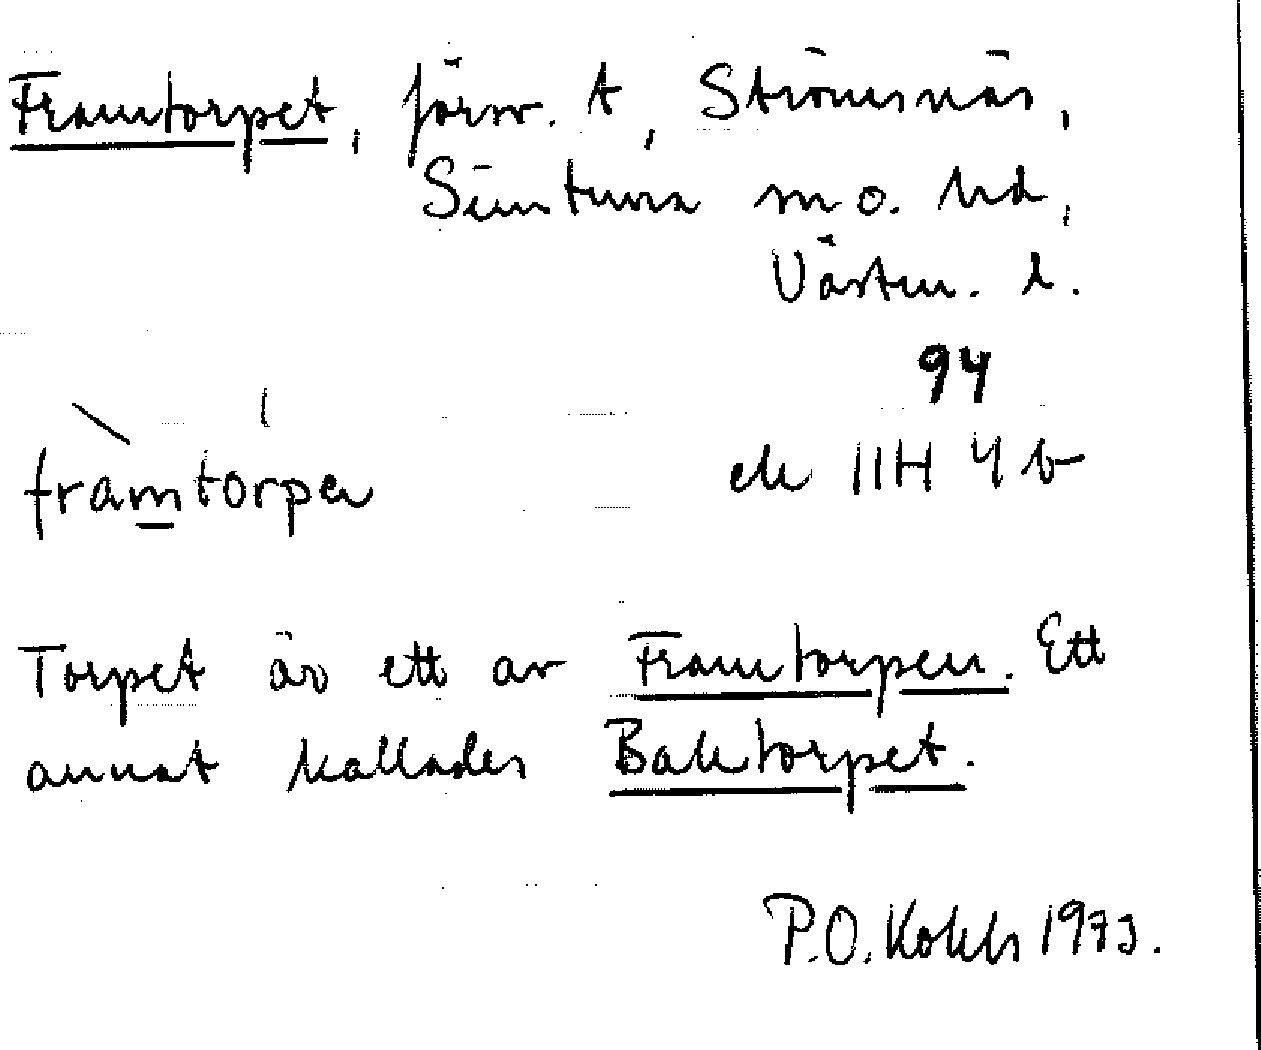 Framtorpet, förr. t, Strömsnäs,
Simtuna sn o. hd,
Västm. l.
94
ek 11H 4 b
framtorpe
Torpet är ett av Framtorpen. Ett
annat kallades Baktorpet.
P.O. 1973.